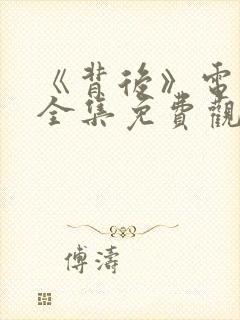 《背後》電
全集免費觀
傅濤